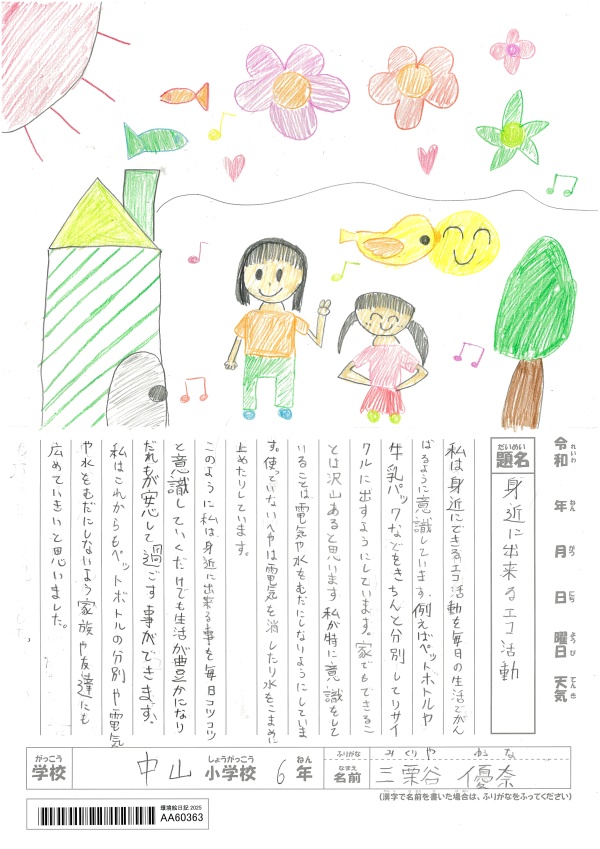 令和 年 月 日 曜日 天気
れいわ ねん がつ にち ようび てんき
だいめい
題名
身近に出来るエコ活動
私は身近にできるエコ活動を毎日の生活でがん
ばるように意識しています。例えばペットボトルや
牛乳パックなどをきちんと分別してリサイ
クルに出すようにしています。家でもできるこ
とは沢山あると思います。私が特に意識をして
いることは電気や水をむだにしないようにしていま
す。使っていないへやは電気を消したり水をこまめに
止めたりしています。
このように私は身近に出来る事を毎日コツコツ
と意識していくだけでも生活が豊かになり
だれもが安心して過ごす事ができます。
私はこれからもペットボトルの分別や電気
や水をむだにしないよう家族や友達にも
広めていきいと思いました。
がっこう
学校
中山
しょうがっこう
小学校
6
ねん
年
ふりがな
みくりや ゆな
なまえ
名前
三栗谷 優奈
(漢字で名前を書いた場合は、ふりがなをふってください)
環境絵日記 2025
AA60363